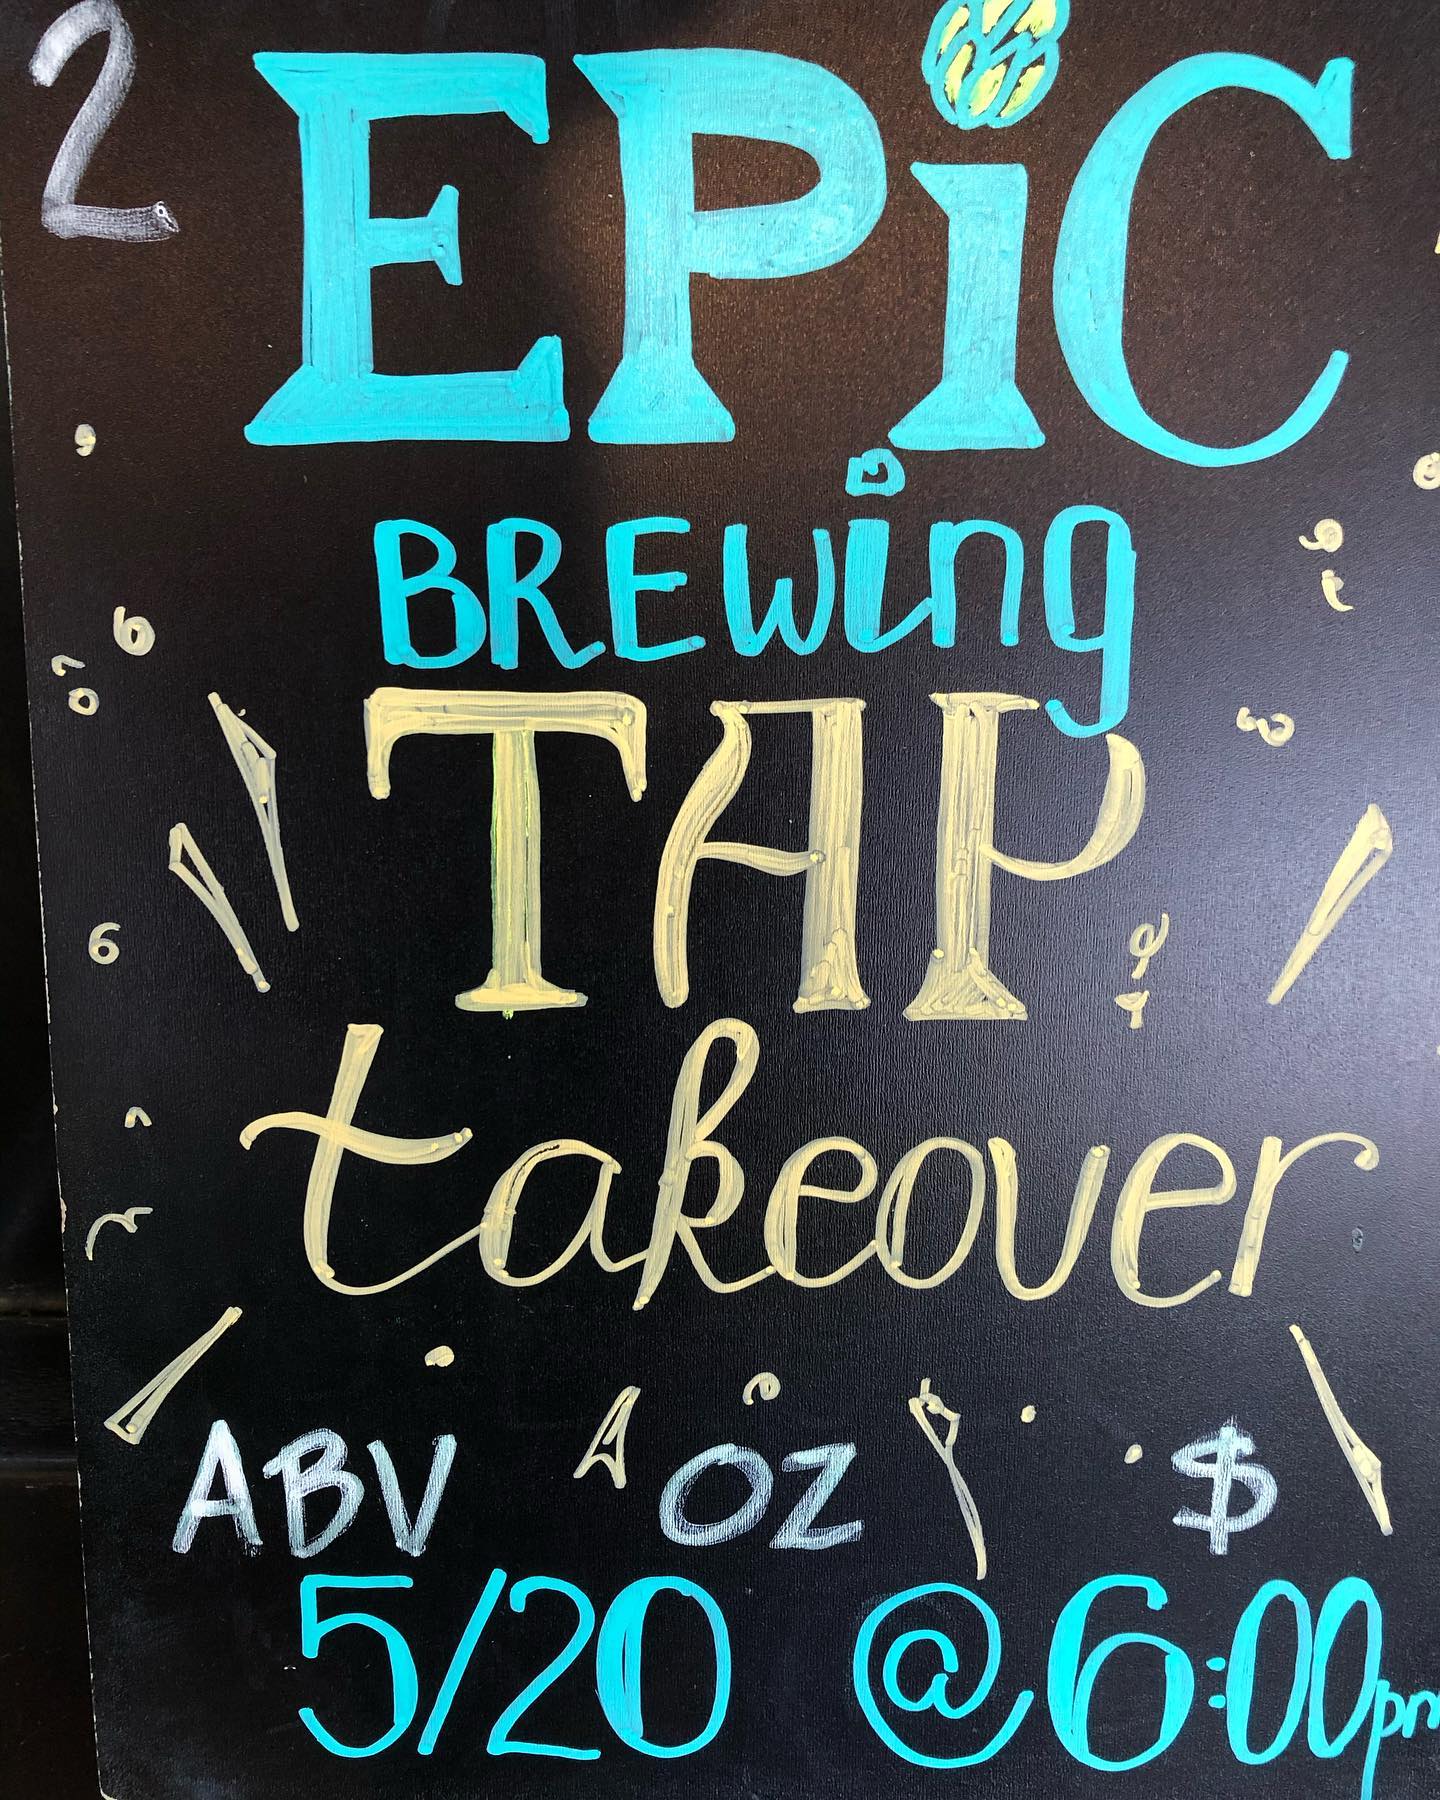 2
EPiC
BREwing
TAP
takeover
ABV OZ $
5/20 @ 6:00pm